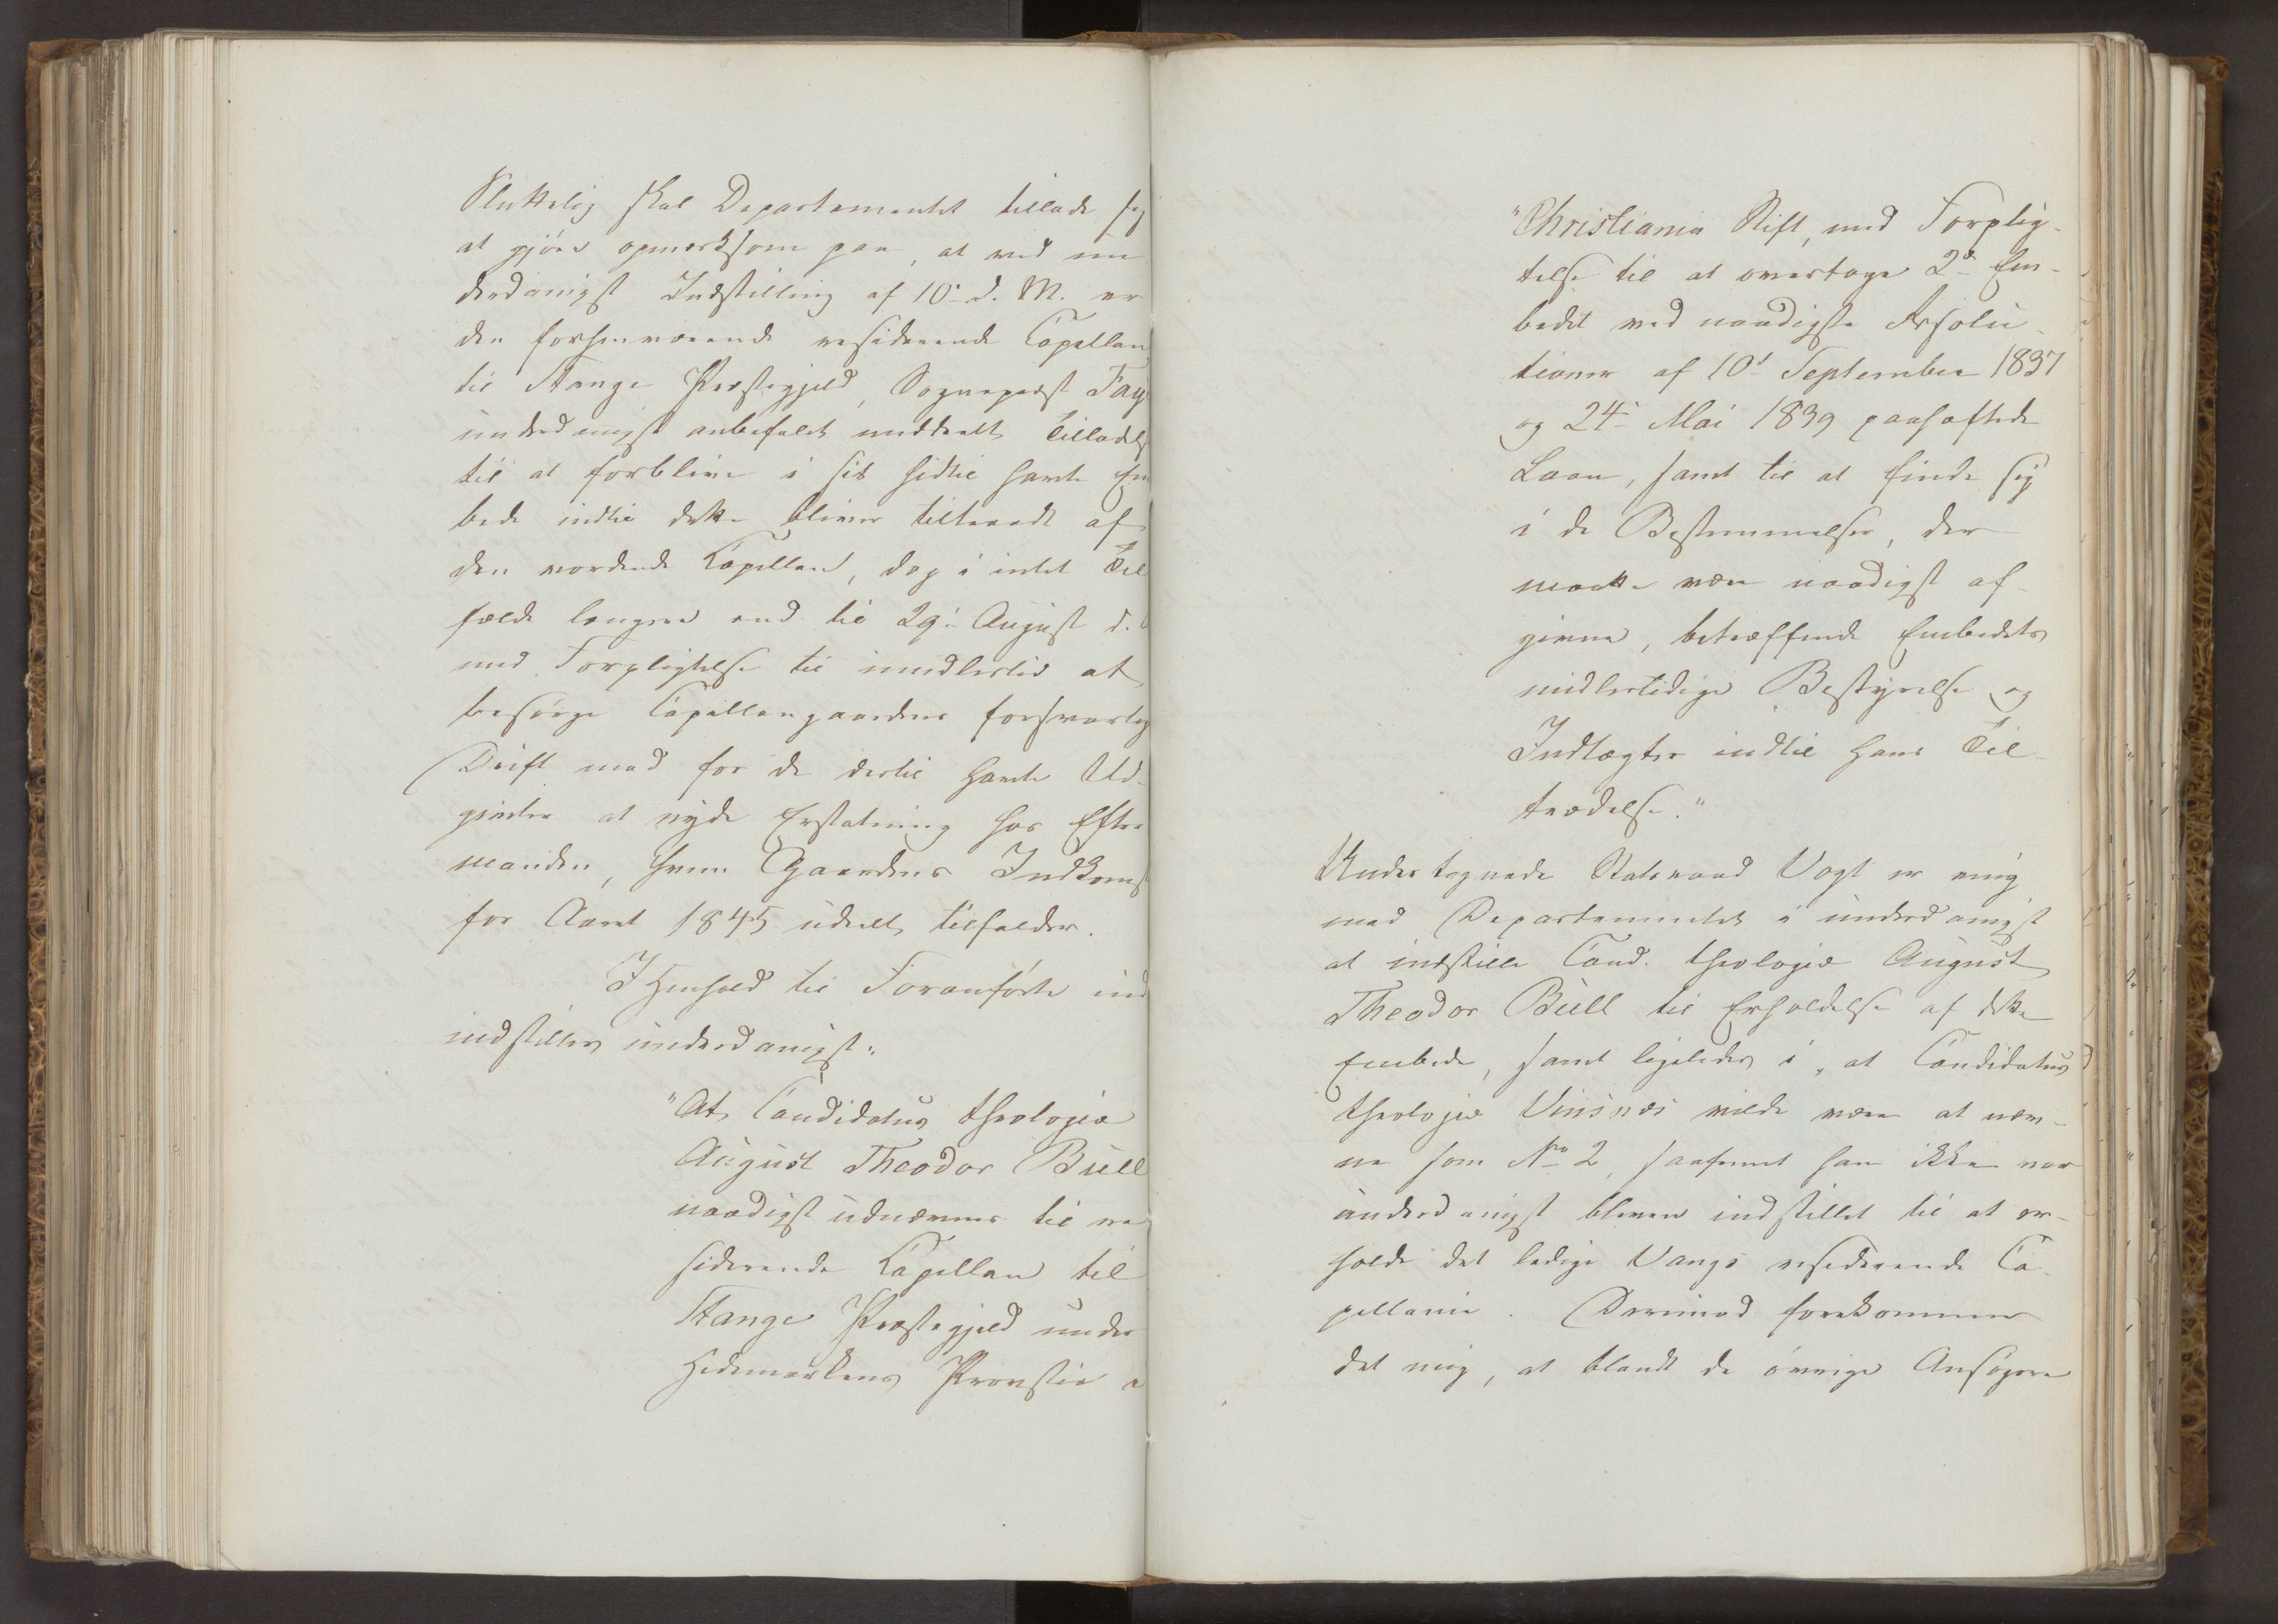 Sluttelig skal Departementet tillade sig
at gjøre opmærksom paa, at ved un
derdanigst Indstilling af 10de d. M. er
den forhenværende residerende Capellan
til Stange Præstegjeld, Sognepræst Faye
underdanigst anbefalet meddeelt Tilladelse
til at forblive i sit hidtil havte Em
bede indtil dette bliver tiltraadt af
den vordende Capellan, dog i intet Til
fælde længere end til 29de August d. A
med Forpligtelse til imidlertid at
besørge Capellangaardens forsvarlig
Drift mod for de dertil havte Ud-
givter at nyde Erstatning hos Efter
manden, hvem Gaardens Indkomst
for Aaret 1845 udeelt tilfalder.
I Henhold til Foranførte ind
indstilles underdanigst:
"At Candidatus theologiæ
August Theodor Bull
naadigst udnævnes til re
siderende Capellan til
Stange Præstegjeld under
Hedemarkens Provstie i
"Christiania Stift, med Forplig-
telse til at overtage 2de Em-
bedet ved naadigste Resolu-
tioner af 10de September 1837
og 24de Mai 1839 paahæftede
Laan, samt til at finde sig
i de Bestemmelser, der
maatte være naadigst af-
givne, betræffende Embedets
midlertidige Bestyrelse og
Indtægter indtil hans Til-
trædelse."
Undertegnede Statsraad Vogt er enig
med Departementet i underdanigst
at indstille Cand. theologiæ August
Theodor Bull til Erholdelse af dette
Embede, samt ligeledes i, at Candidatus
theologiæ Vinsnes vilde være at næv-
ne som No 2, saafremt han ikke var
underdanigst bleven indstillet til at er-
holde det ledige Vangs residerende Ca-
pellanie. Derimod forekommer
det mig, at blandt de øvrige Ansøgere